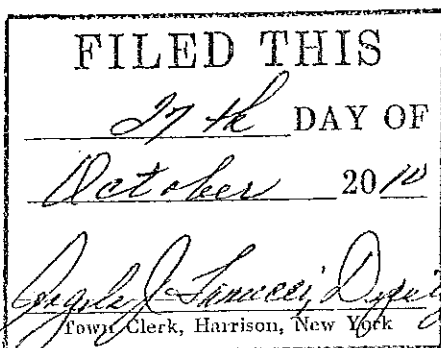 FILED THIS
27th DAY OF
October 2010
Angela J.
Town Clerk, Harrison, New York